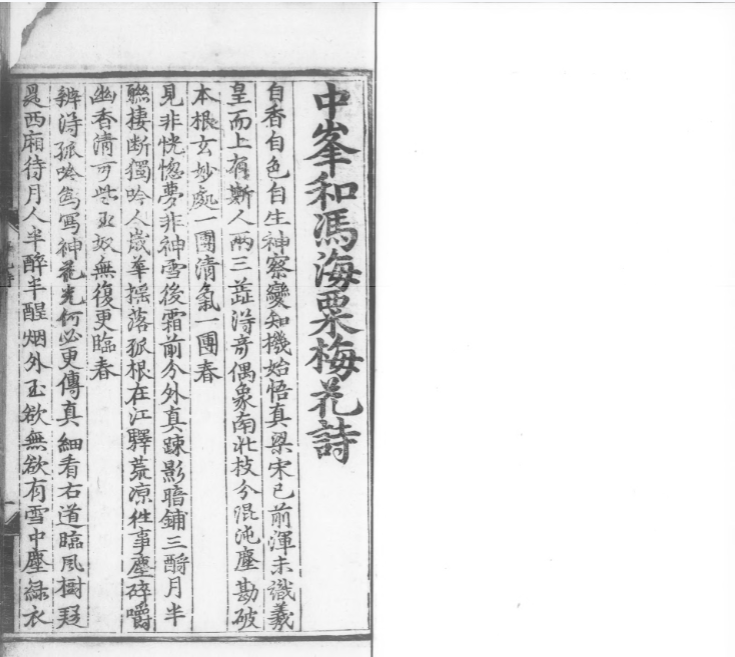 中峯和馮海粟梅花詩
自香自色自生神察變知機始悟真梁宋已前渾未識羲
皇而上有斯人兩三蕋淂奇偶象南北枝分混沌塵勘破
本根玄妙處一團清氣一團春
見非恍惚夢非神雪後霜前分外真踈影暗鋪三酹月半
聮棲断獨吟人歳華揺落孤根在江驛荒凉徃事塵碎嚼
幽香清可些玉奴無復更臨春
辨淂孤吟寫神花光何必更傳真細看右道臨風樹疑
是西廂待月人半醉半醒烟外玉欲無欲有雪中塵緑衣